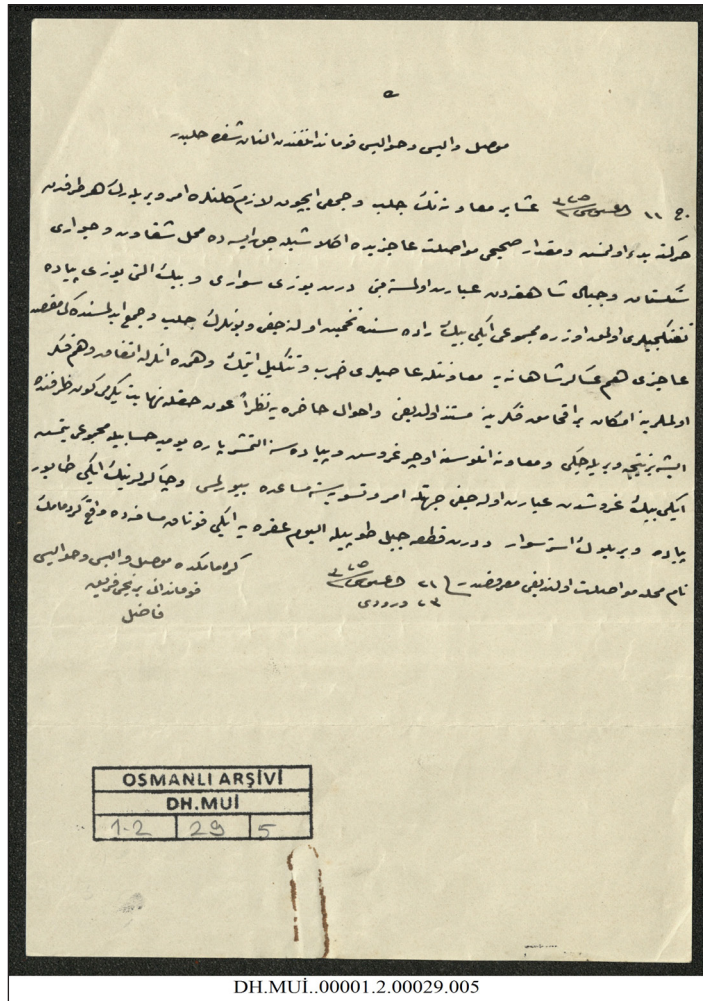 ٥
موصل والیسی وحوالیسی قوماندانلغندن آلنان شفره حلیدر
ج ١١ اغستوس ٣٢٥ عشایر معاونه نك جلب وجمعی ایچون لازم كلنلره امر ویریلەرك هر طرفدن
حركته بدء اولنمش ومقدار صحیحی مواصلت عاجزیده اكلاشیله جق ایسه ده محل شقاوت وجواری
سنكستان وجبال شاهقه دن عبارت اولمسنه مبنی درت یوزی سواری وبیك التی یوزی پیاده
تفنكچیلری اولمق اوزره مجموعی ایكی بیك راده سنده تخمین اوله جغی وبونلرك جلب وجمع ایدلمسنده كی مقصد
عاجزی هم عساكر شاهانه یه معاونتله عاصیلری ضرب وتنكیل ایتمك وهمده انلرله اتفاق وهم فكر
اولملرینه امكان براقمامق فكرینه مستند اولدیغی واحوال حاضره یه نظراً عون حقله نهایت یكرمی كون ظرفنده
ایشه بر نتیجه ویریله جكی ومعاونه اتلوسنه اوچر غروش وپیاده سنه التمشر پاره یومیه حسابیله مجموعی یتمش
ایكی بیك غروشدن عبارت اوله جغی جهتله امر وتسویه سنه مساعده بیورلمسی ایكی طابور
پیاده وبر بلوك استر سوار ودرت قطعه جبل طوپیله الیوم عقره یه ایكی قوناق مسافه ده واقع كرمامك
نام محله مواصلت اولندیغی معروضدر فی ٢١ اغستوس ٣٢٥
٢٣ ورودی
كرمامكده موصل والیسی وحوالیسی
قوماندانی برنجی فریق
فاضل
OSMANLI ARŞİVİ
DH.MUİ
1-2 29 5
DH.MUİ..00001.2.00029.005